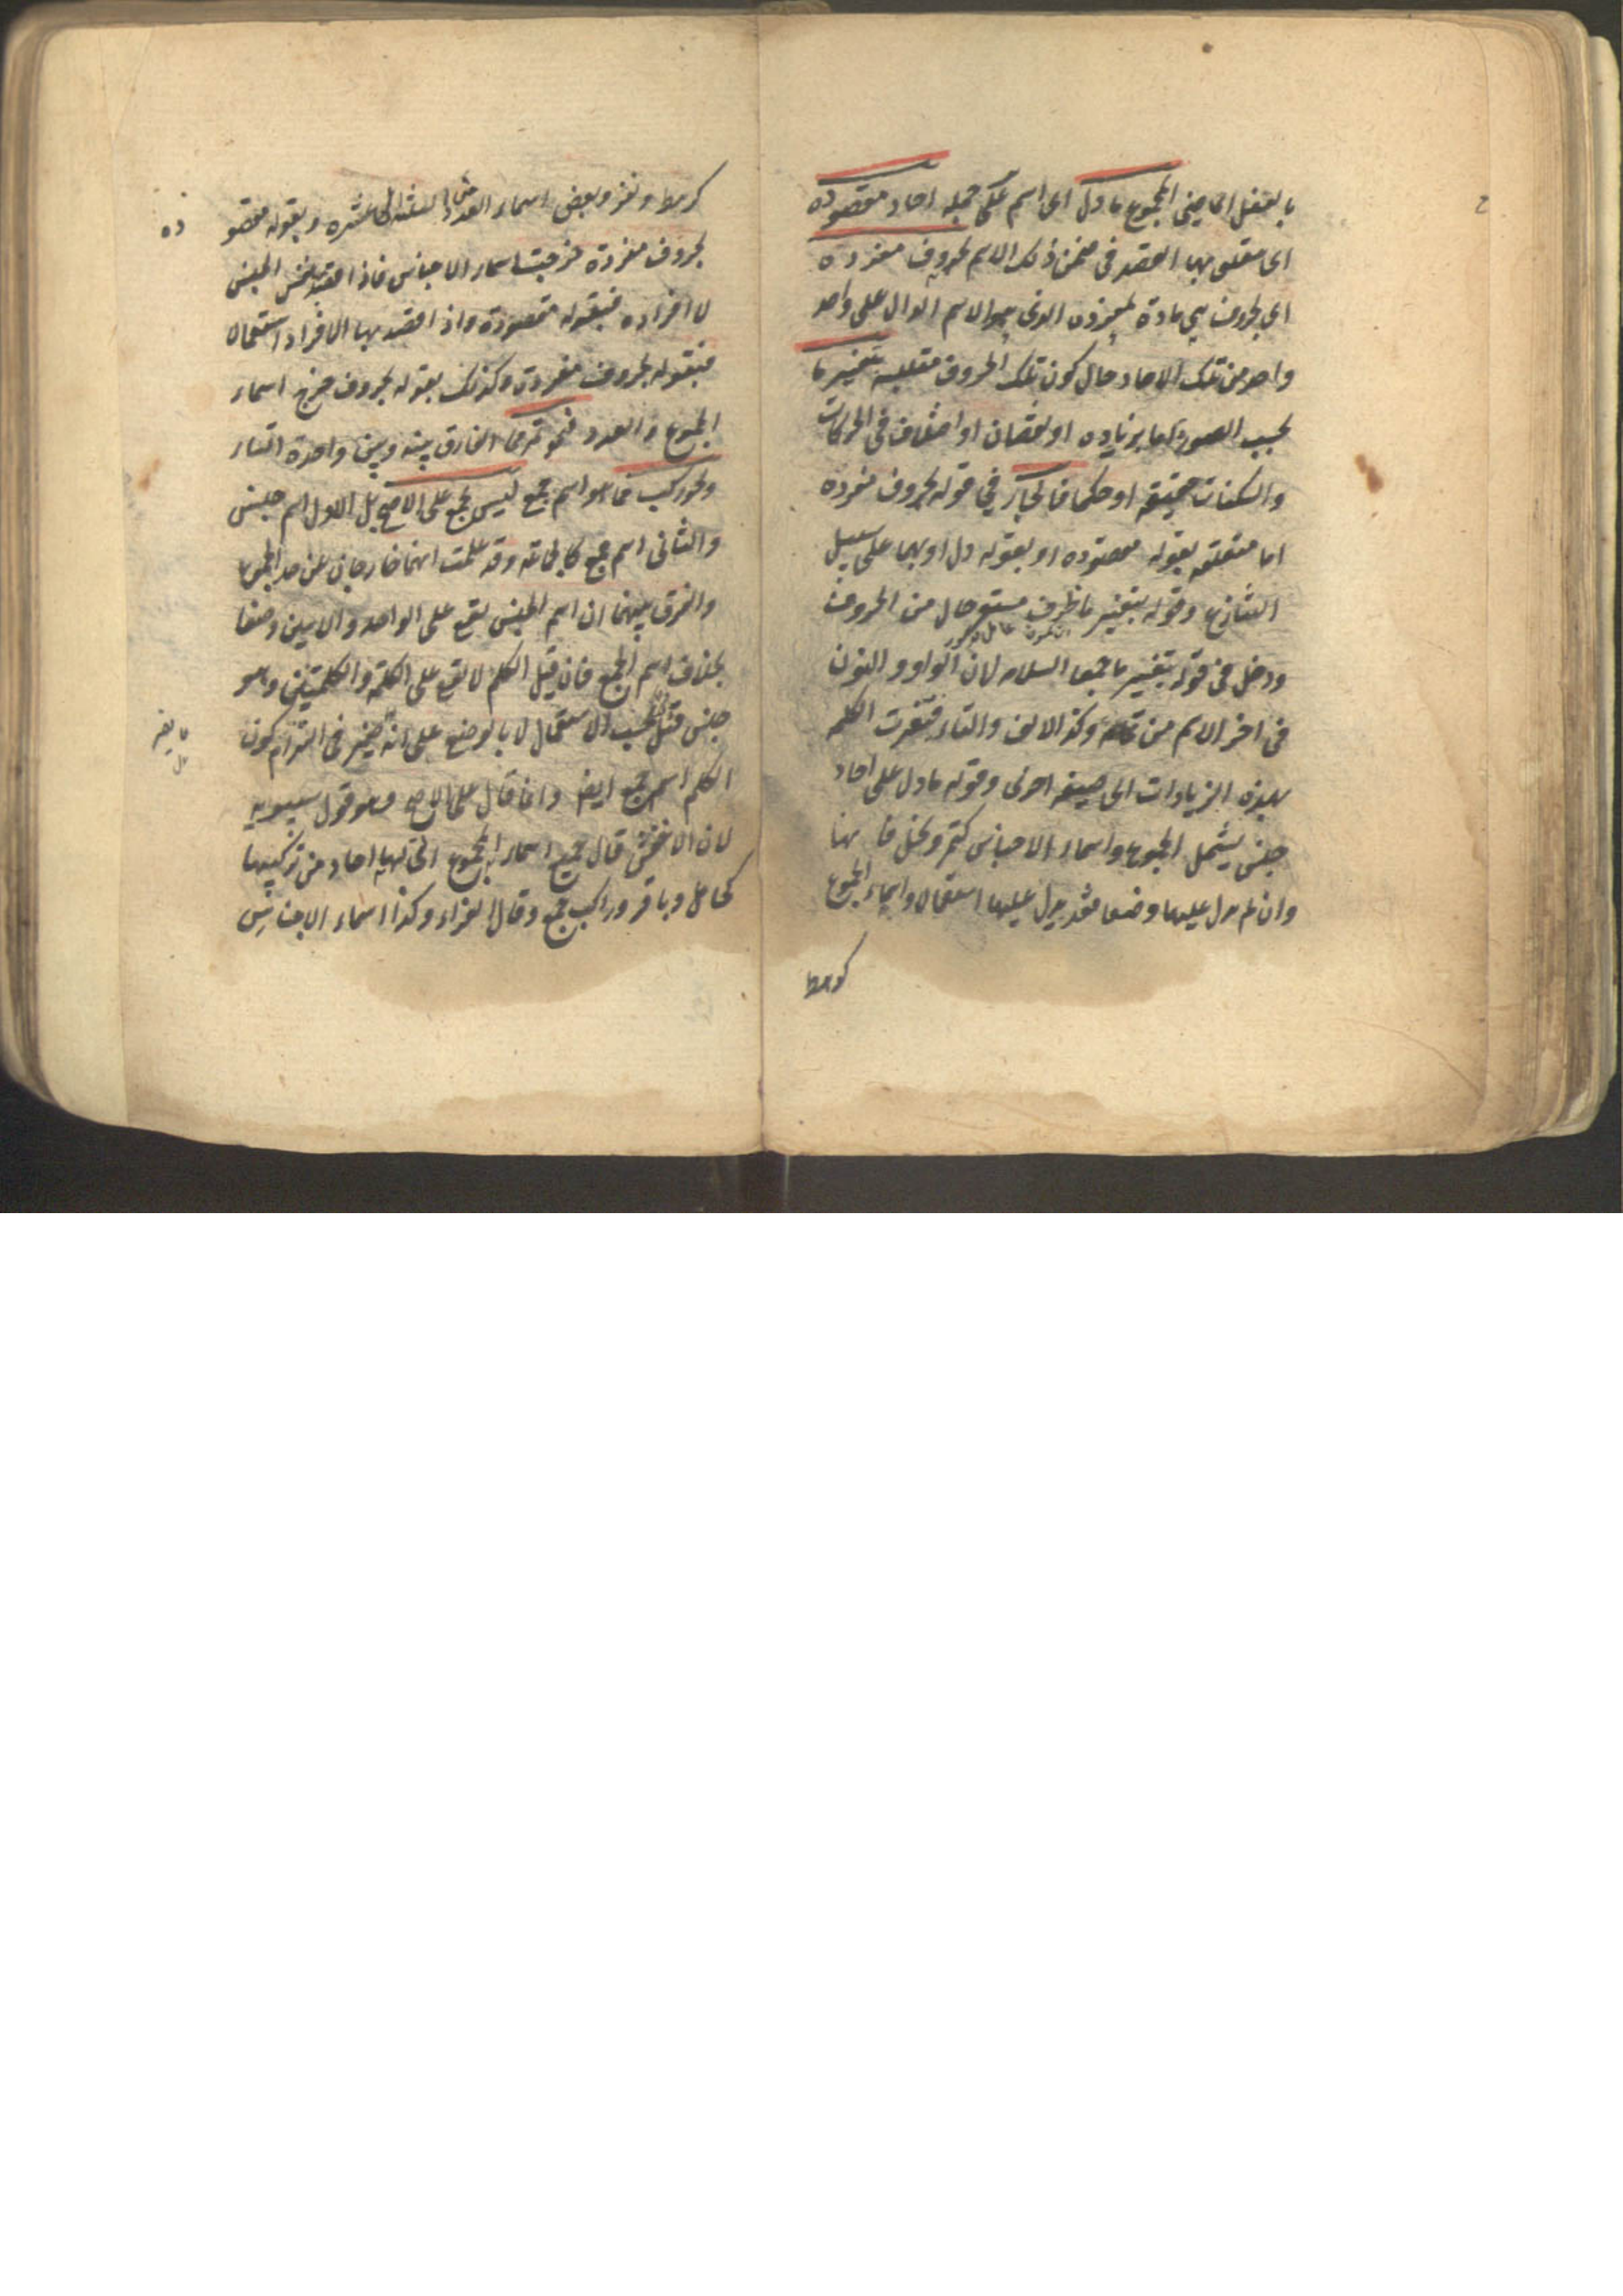 بالفعل الماضي المجموع ما دل اى اسم على جملة احاد مقصوده
اى متعلق بها القصد فى ضمن ذلك الاسم بحروف مفرده
اى بحروف هي مادة لمفرده الذى هو الاسم الدال على واحد
واحد من تلك الاحاد حال كون تلك الحروف متلبسة بتغيير ما
بحسب الصورة اما بزياده او نقصان او اختلاف فى الحركات
والسكنات حقيقة او حكما فالجار في قوله بحروف مفرده
اما متعلقه بقوله مقصوده او بقوله دل او بهما على سبيل
التنازع وقوله بتغيير ما ظرف مستقر حال من الحروف
ودخل فى قوله بتغيير ما جمعا السلامه لان الواو والنون
فى اخر الاسم من تمامه وكذا الالف والتاء فتغيرت الكلمة
بهذه الزيادات الى صيغة اخرى وقوله ما دل على احاد
جنس يشمل المجموع واسماء الاجناس كتمر ونخل فانها
وان لم يدل عليها وضعا فقد يدل عليها استعمالا واسماء الجموع
كرهط
كرهط ونفر وبعض اسماء العدد كالثلثة الى عشرة وبقوله مقصو
ده
بحروف مفردة خرجت اسماء الاجناس فاذا قصد بها نفس الجنس
لا افراده فبقوله مقصودة واذا قصد بها الافراد استعمالا
فبقوله بحروف مفردة وكذلك بقوله بحروف خرج اسماء
الجموع والعدد فنحو تمر مما الفارق بينه وبين واحدة التاء
ونحو ركب مما هو اسم جمع ليس بجمع على الاصح بل الاول اسم جنس
والثانى اسم جمع كالجماعة وقد علمت انهما خارجان عن حد المجموع
والفرق بينهما ان اسم الجنس يقع على الواحد والاثنين وضعا
بخلاف اسم الجمع فان قيل الكلم لا يقع على الكلمة والكلمتين وهو
جنس قلنا بحسب الاستعمال لا بالوضع على انه لا ضير فى التزام كون
الكلم اسم جمع ايضا وانما قال على الاصح وهو قول سيبويه
لان الاخفش قال جميع اسماء الجموع التى لها احاد من تركيبها
كجامل وباقر وراكب جمع وقال الفراء وكذا اسماء الاجناس